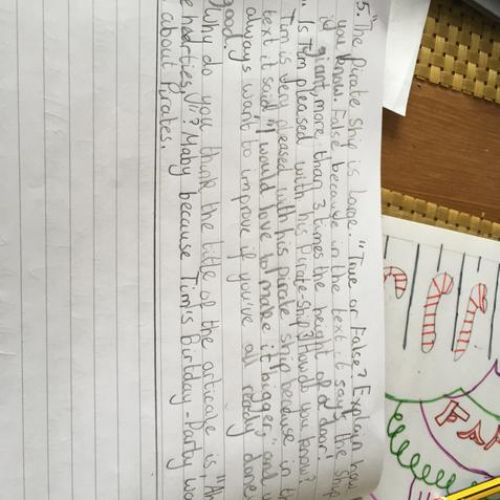 5. "The pirate ship is large." True or False? Explain how
you know. False because in the text it says the ship
is giant, more than 3 times the height of a door!
" Is Tim pleased with his pirate-ship? How do you know?
Tim is very pleased with his pirate ship because in t
text it said "I would love to make it bigger," and y
always want to improve if you've all ready done
good.
Why do you think the title of the articale is, "Th
e hearties VII? Maby because Tim's Birtday-Party wa
about Pirates.
FA